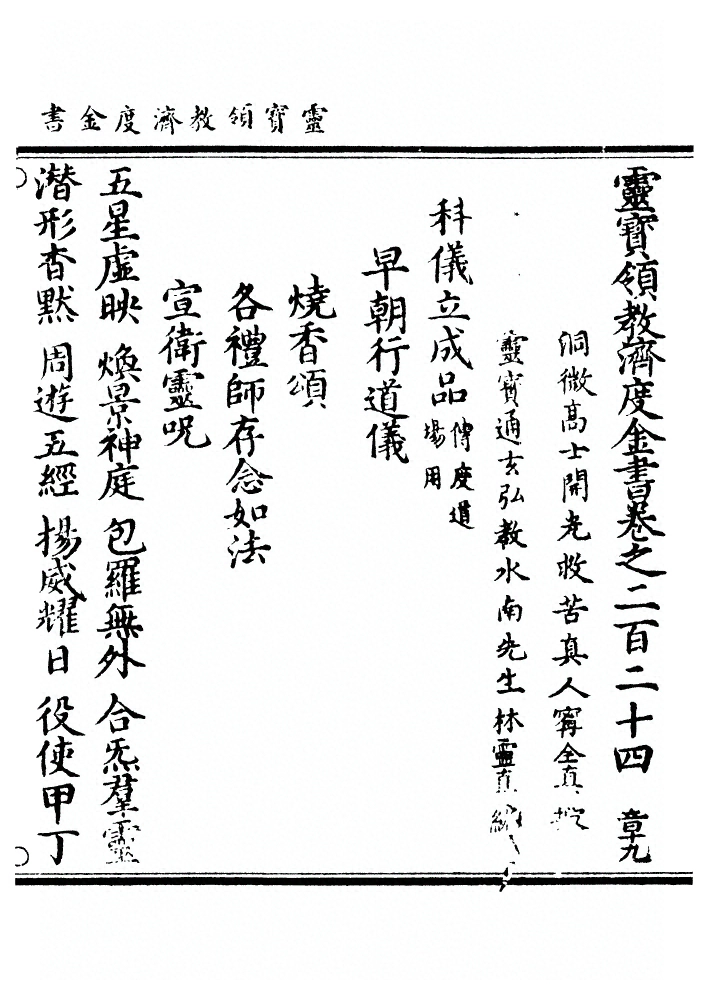 靈寶領教濟度金書
靈寶領教濟度金書卷之二百二十四 章九
洞微高士開光救苦真人寗全真授
靈寶通玄弘教水南先生林靈真編
科儀立成品 傳度道場用
早朝行道儀
燒香頌
各禮師存念如法
宣衛靈呪
五星虛映 煥景神庭 包羅無外 合炁羣靈
潛形杳默 周遊五經 揚威耀日 役使甲丁